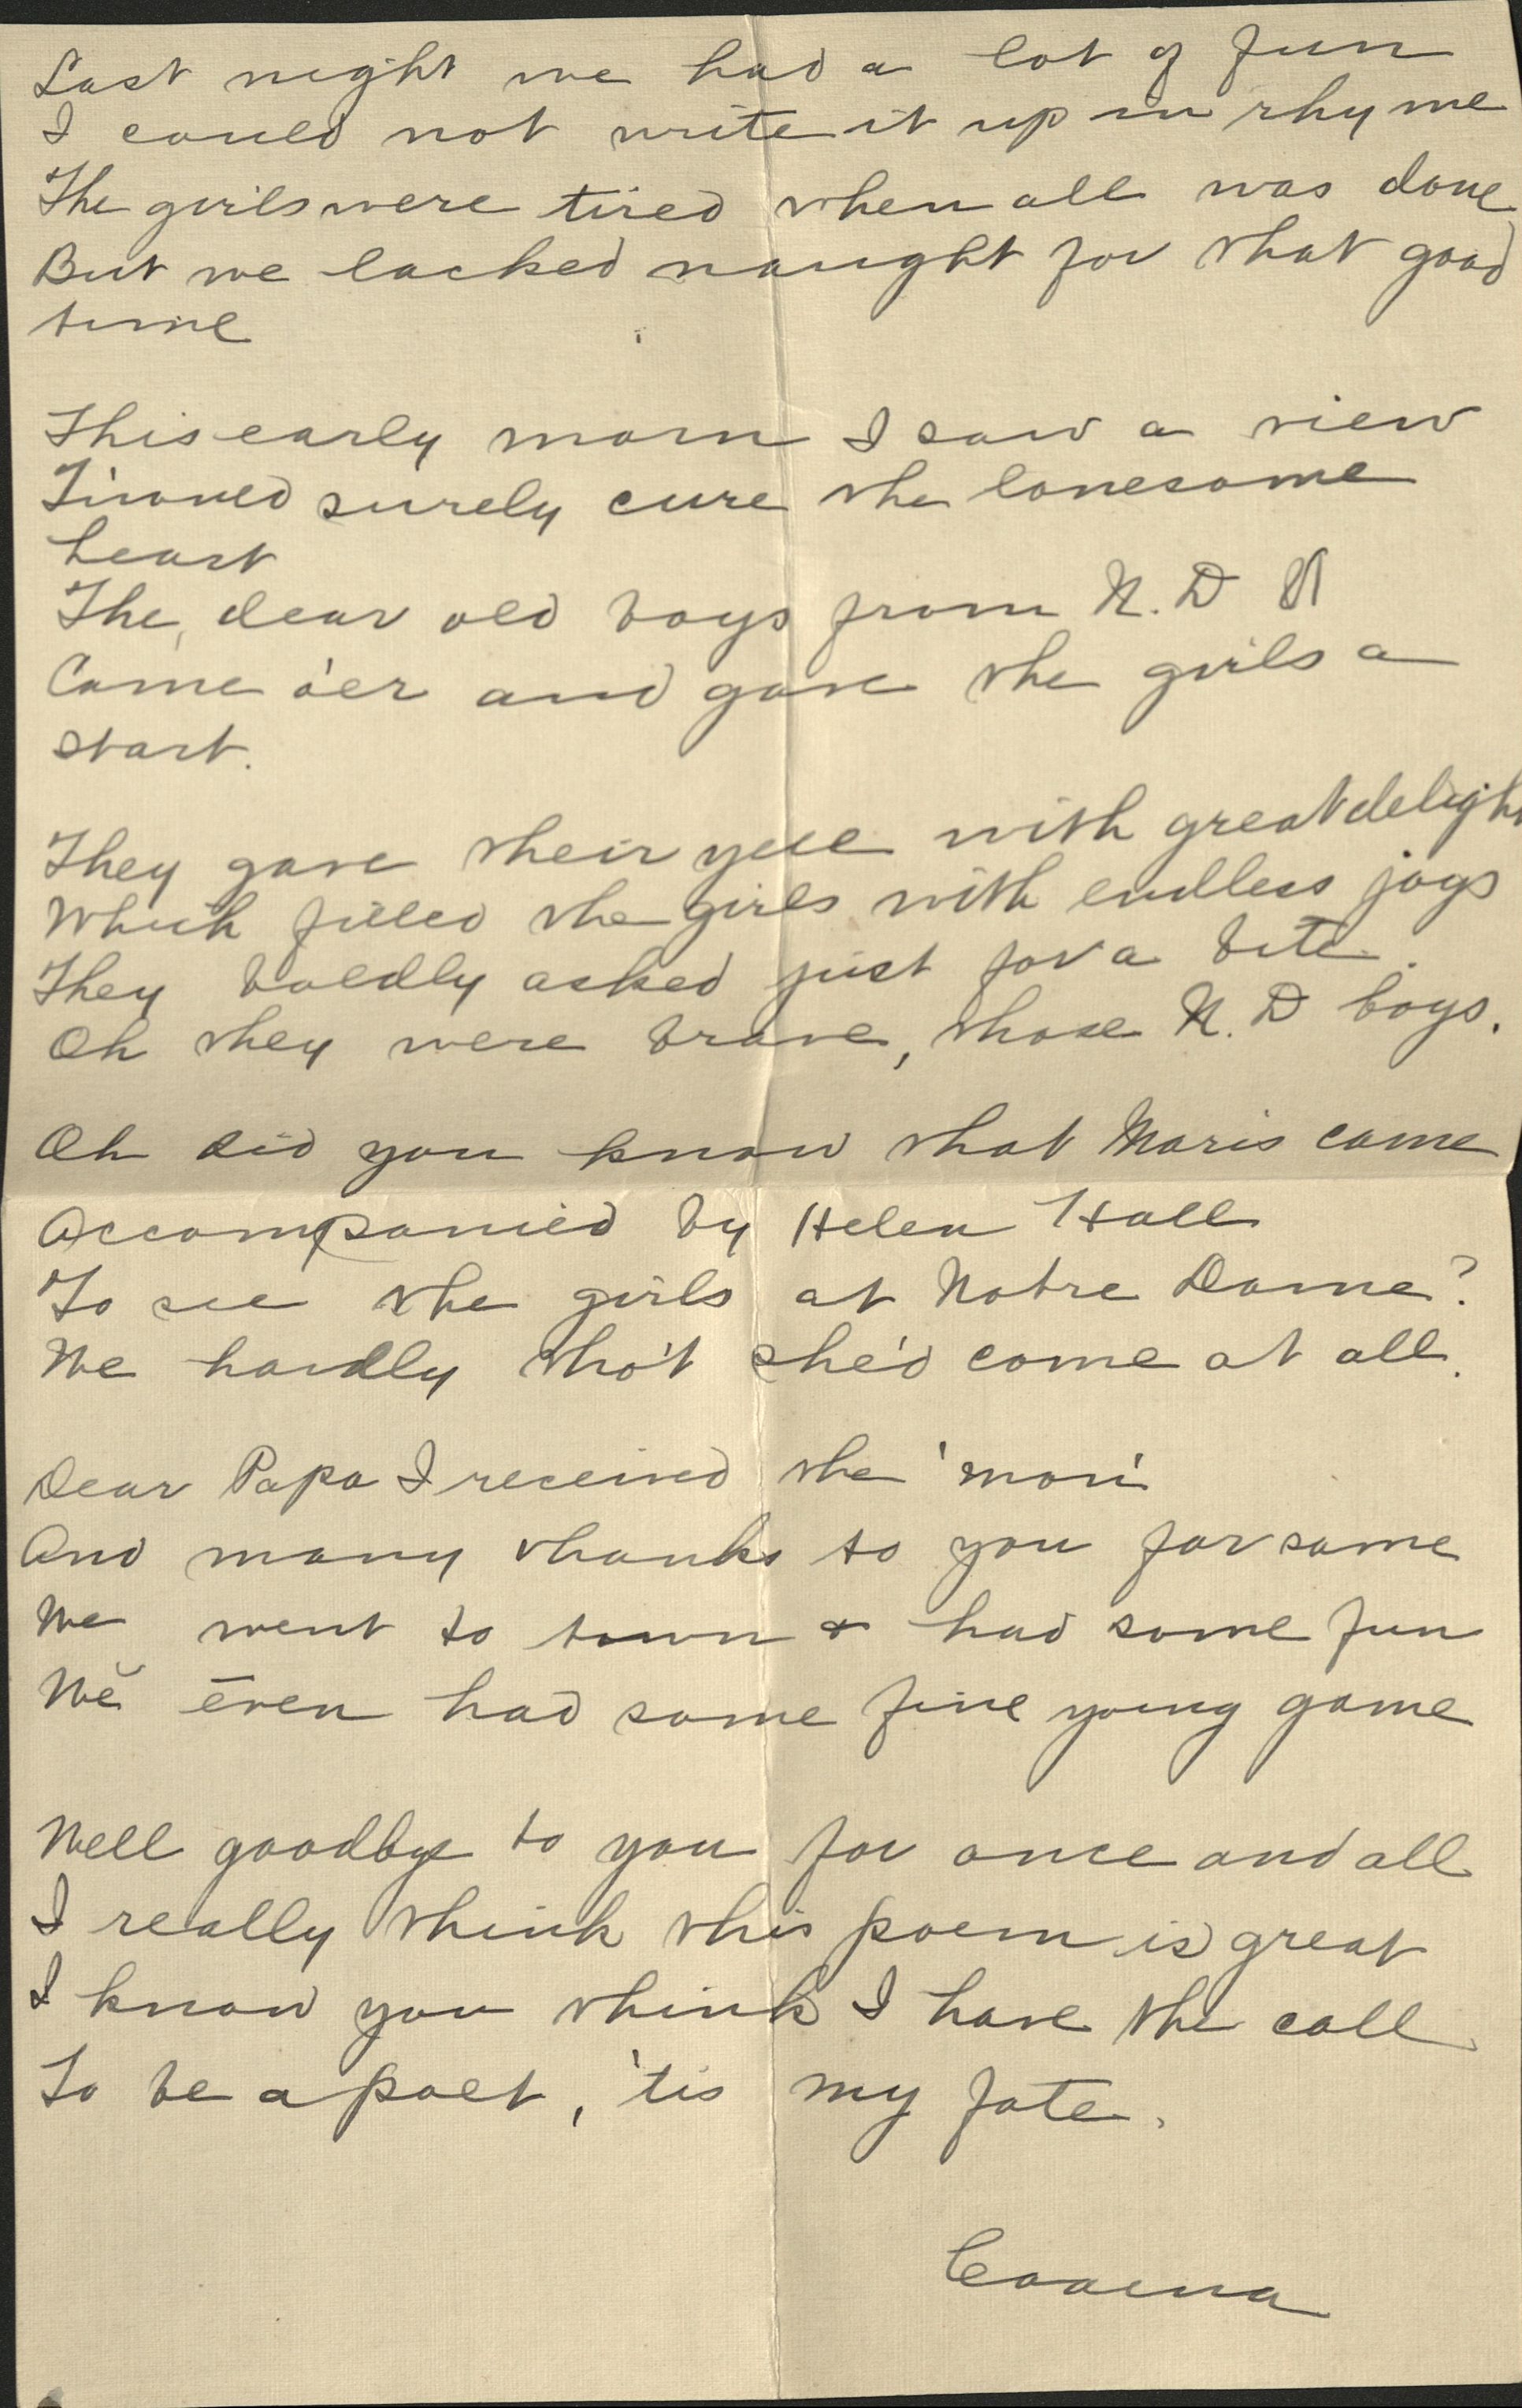 Last night we had a lot of fun
I could not write it up in rhyme
The girls were tired when all was done
But we lacked naught for that good
time
This early morn I saw a view
T'would surely cure the lonesome
heart
The dear old boys from N. D U
Came o'er and gave the girls a
start.
They gave their yell with great delight
Which filled the girls with endless joys
They boldly asked just for a bite.
Oh they were brave, those N. D boys.
Oh did you know that Maris came
Accompanied by Helen Hall
To see the girls at Notre Dame?
We hardly tho't she'd come at all.
Dear Papa I received the 'mon'
And many thanks to you for same
We went to town & had some fun
Wĕ ēven had some fine young game
Well goodbye to you for once and all
I really think this poem is great
I know you think I have the call
To be a poet, 'tis my fate.